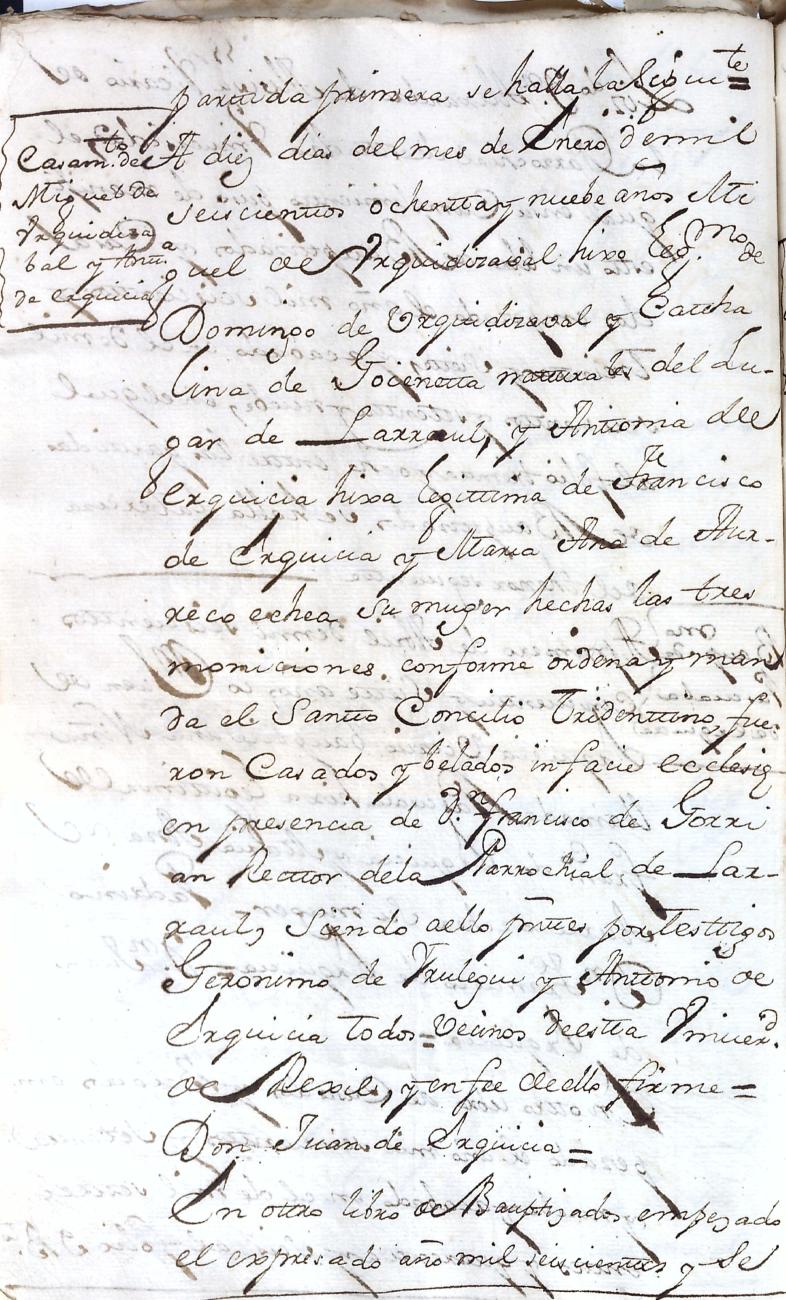 partida primera se halla la Siguite=
Casamto. de
Miguel de
Vrquidiza
bal y Anta.
de erquicia
A diez dias del mes de Enero de mil
seiscienttos ochentta y nuebe años Mi
guel de Vrquidizaval hixo Legmo. de
Domingo de Vrquidizaval y Catha
lina de Goienetta natturales del Lu-
gar de Larraul, y Anttonia de
erquicia hixa legittima de Francisco
de Erquicia y Maria Ana de Aur-
recoechea su muger hechas las tres
moniciones conforme ordena y man
da el Santto Concilio Tridenttino, fue
ron Casados y belados in facie ecclesie
en presencia de Dn. Francisco de Gorri
an Recttor de la Parrochial de Lar-
raul, Siendo a ello pnttes. por testtigos
Geronimo de Yrulegui y Anttonio de
Erquicia todos=Vecinos de estta Vniverd.
de Rexil, y en fee de ello firme=
Don Juan de Erquicia=
En ottro libro de Bauptizados empezado
el expresado año mil seiscienttos y se